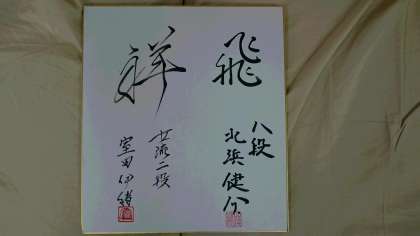 飛
八段
北浜健介
祥
女流二段
室田伊緒